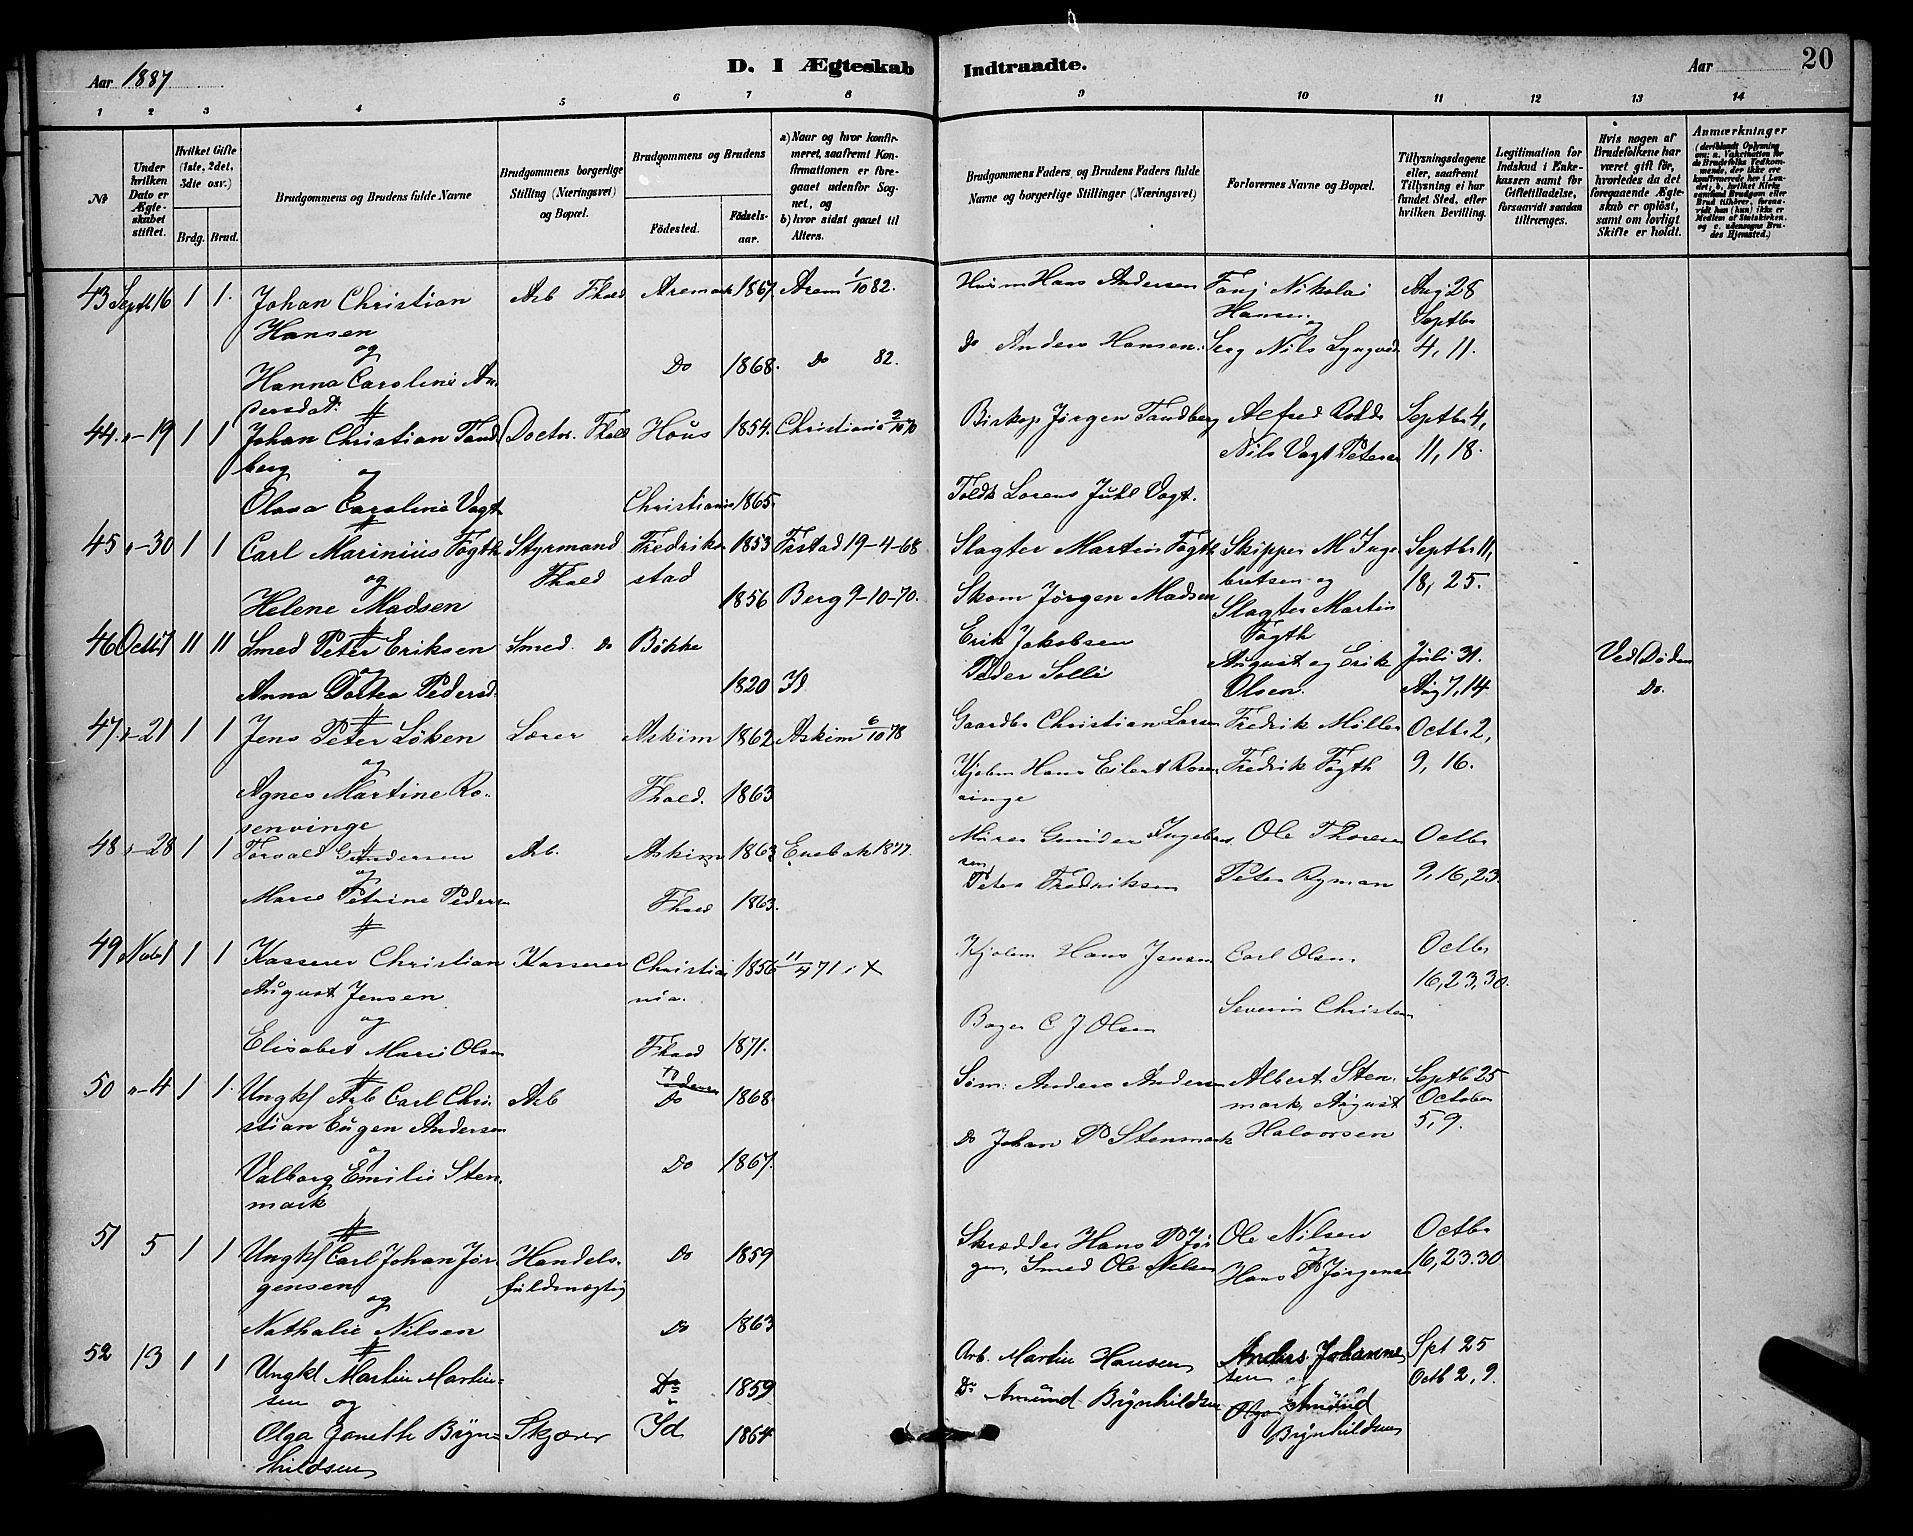 Aar 1887
D. I Ægteskab
Indtraadte.
Aar
20
1 2 3 4 5 6 7 8
9 10 11 12 13 14
№
Under hvilken Dato er Ægteskabet stiftet.
Hvilket Gifte (1ste, 2det, 3die osv.)
Brdg. Brud.
Brudgommens og Brudens fulde Navne
Brudgommens borgerlige Stilling (Næringsvei) og Bopæl.
Brudgommens og Brudens
Fødested.
Fødselsaar.
a) Naar og hvor konfirmeret, saafremt Konfirmationen er foregaaet udenfor Sognet, og
b) hvor sidst gaaet til Alters.
Brudgommens Faders og Brudens Faders fulde Navne og borgerlige Stillinger (Næringsvei)
Forlovernes Navne og Bopæl.
Tillysningsdagene eller, saafremt Tillysning ei har fundet Sted, efter hvilken Bevilling.
Legitimation for Indskud i Enkekassen samt for Giftetilladelse, forsaavidt saadan tiltrænges.
Hvis nogen af Brudefolkene har været gift før, hvorledes da det foregaaende Ægteskab er opløst, samt om lovligt Skifte er holdt.
Anmærkninger
43 Septb 16 1 1. Johan Christian Hansen og Arb Fhald Aremark 1867. Arem 1/10 82. Hans Andersen Nikolai Hansen og Aug 28 Septbr
Hanna Caroline Andersdt. Do 1868. Do 82. Do Anders Hansen. Serg Nils 4, 11.
44. " - 19 1 1 Johan Christian Tandberg og Doctor. Fhald Høus 1854. Christiania 2/10 70 Biskop Jørgen Tandberg Alfred Septbr 4,
Nils Vogt Petersen 11, 18.
Olava Caroline Vogt Christiania 1865. Toldk Lorens Juhl Vogt.
45 " - 30 1 1 Carl Marinius Fogth og Styrmand Fhald Fredrikstad 1853 Frstad 19-4-68 Slagter Martin Fogth Skipper M Ingebretsen og Septbr 11,
18, 25.
Helene Madsen 1856 Berg 9-10-70. Skom Jørgen Madsen Slagter Martin Fogth
46 Octb 1 11 11 Smed Peter Eriksen og Smed. Do Bøkke Erik Jakobsen August og Erik Olsen. Juli 31. Ved Døden
Anna Dortea Pedersd. 1820 Id Peder Solli Aug 7, 14 Do.
47 " - 21 1 1 Jens Peter Løken og Lærer Askim 1862 Askim 6/10 78 Gaardbr Christian Larsen Fredrik Møller Octbr 2,
Agnes Martine Rosenvinge Fhald. 1863 Kjøbm Hans Eilert Rosenvinge Fredrik Fogth 9, 16.
48 " - 28 1 1 Torvald Gundersen og Arb. Askim 1863 Enebak 1877. Murer Gunder Ingebretsen Ole Thoresen Octbr
Marie Petrine Pedersen Fhald 1863. Peter Fredriksen Peter Ryman 9, 16, 23.
49 Novb 1 1 1 Kasserer Christian August Jensen og Kasserer Christiania. 1856 11/4 71 i X Kjøbm Hans Jensen Carl Olsen. Octbr
16, 23, 30.
Elisabet Marie Olsen Fhald 1871. Bager C J Olsen Severin Christen
50 " - 4 1 1. Ungkf Arb Carl Christian Eugen Andersen og Arb Do 1868. Søm: Anders Andersen Albert Stenmark, August Halvorsen Septb 25 October 5, 9.
Valborg Emilie Stenmark Do 1867. Do Johan P Stenmark
51 5 1 1 Ungkf Carl Johan Jørgensen og Handelsfuldmægtig Do 1859 Skrædder Hans P Jørgen, Smed Ole Nilsen Ole Nilsen og Octbr
Nathalie Nilsen Do 1863 Hans P Jørgensen 16, 23. 30
52 13 1 1 Ungkl Martin Martinsen og Do 1859 Arb. Martin Hansen Anders Johannesen og Spt 25
Olga Janette Bÿnhildsen Skjærer Id 1864 Do Amund Brÿnhildsen Amund Brÿnhildsen Octb 2, 9.